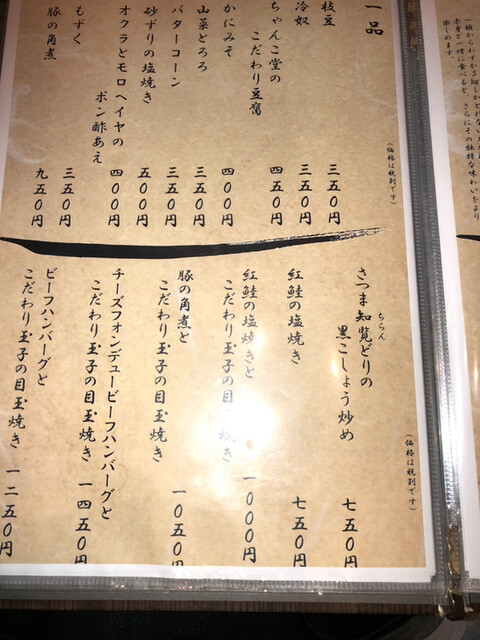 一品
(価格は税別です)
枝豆 三五〇円
冷奴 三五〇円
ちゃんこ堂の
こだわり豆腐 四五〇円
かにみそ 四〇〇円
山菜とろろ 三五〇円
バターコーン 三五〇円
砂ずりの塩焼き 五〇〇円
オクラとモロヘイヤの
ポン酢あえ 四〇〇円
もずく 三五〇円
豚の角煮 九五〇円
(価格は税別です)
さつま知覧どりの
ちらん
黒こしょう炒め 七五〇円
紅鮭の塩焼き 七五〇円
紅鮭の塩焼きと
こだわり玉子の目玉焼き 一〇〇〇円
豚の角煮と
こだわり玉子の目玉焼き 一〇五〇円
チーズフォンデュービーフハンバーグと
こだわり玉子の目玉焼き 一四五〇円
ビーフハンバーグと
こだわり玉子の目玉焼き 一二五〇円
赤身と一緒に食べると、さらにその独特な味わいをより
楽しめます。